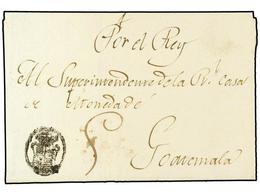 Por el Rey
Al Superintendente de la Rl. Casa
de Moneda de
Goatemala